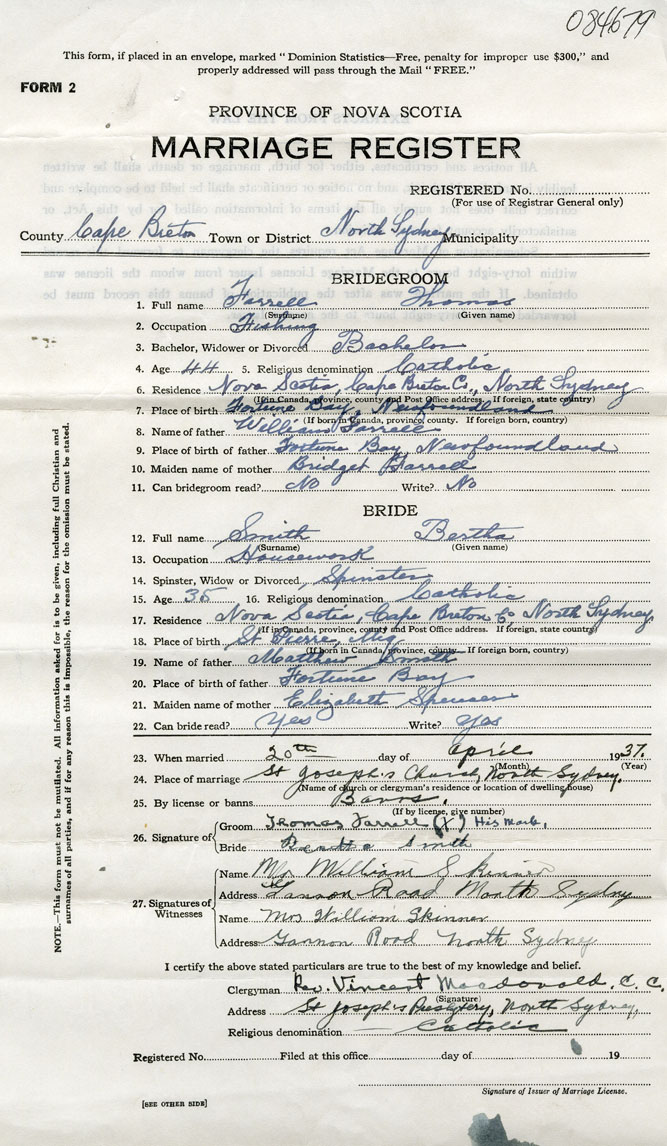 084679
This form, if placed in an envelope, marked "Dominion Statistics—Free, penalty for improper use $300," and
properly addressed will pass through the Mail "FREE."
FORM 2
PROVINCE OF NOVA SCOTIA
MARRIAGE REGISTER
REGISTERED No.
(For use of Registrar General only)
County Cape Breton Town or District North Sydney Municipality
BRIDEGROOM
1. Full name Farrell Thomas
(Surname) (Given name)
2. Occupation Fishing
3. Bachelor, Widower or Divorced Bachelor
4. Age 44 5. Religious denomination Catholic
6. Residence Nova Scotia, Cape Breton Co., North Sydney
(If in Canada, province, county and Post Office address. If foreign, state country)
7. Place of birth Fortune Bay, Newfoundland
(If born in Canada, province, county. If foreign born, country)
8. Name of father William Farrell
9. Place of birth of father Fortune Bay Newfoundland
10. Maiden name of mother Bridget Farrell
11. Can bridegroom read? No Write? No
BRIDE
12. Full name Smith Bertha
(Surname) (Given name)
13. Occupation Housework
14. Spinster, Widow or Divorced Spinster
15. Age 35 16. Religious denomination Catholic
17. Residence Nova Scotia, Cape Breton Co North Sydney
(If in Canada, province, county and Post Office address. If foreign, state country)
18. Place of birth St Pierre, Miq
(If born in Canada, province, county. If foreign born, country)
19. Name of father Matthew Smith
20. Place of birth of father Fortune Bay
21. Maiden name of mother Elizabeth Spencer
22. Can bride read? Yes Write? Yes
23. When married 20th day of April 1937.
(Month) (Year)
24. Place of marriage St Joseph's Church, North Sydney.
(Name of church or clergyman's residence or location of dwelling house)
25. By license or banns Banns.
(If by license, give number)
26. Signature of
Groom Thomas Farrell (X) His Mark.
Bride Bertha Smith
27. Signatures of Witnesses
Name Mr William Skinner
Address Gannon Road North Sydney
Name Mrs William Skinner
Address Gannon Road North Sydney
I certify the above stated particulars are true to the best of my knowledge and belief.
Clergyman Rev. Vincent Macdonald, C. C.
(Signature)
Address St Joseph's Presbytery, North Sydney,
Religious denomination Catholic
Registered No. Filed at this office day of 19
Signature of Issuer of Marriage License.
[SEE OTHER SIDE]
NOTE.—This form must not be mutilated. All information asked for is to be given, including full Christian and
surnames of all parties, and if for any reason this is impossible, the reason for the omission must be stated.